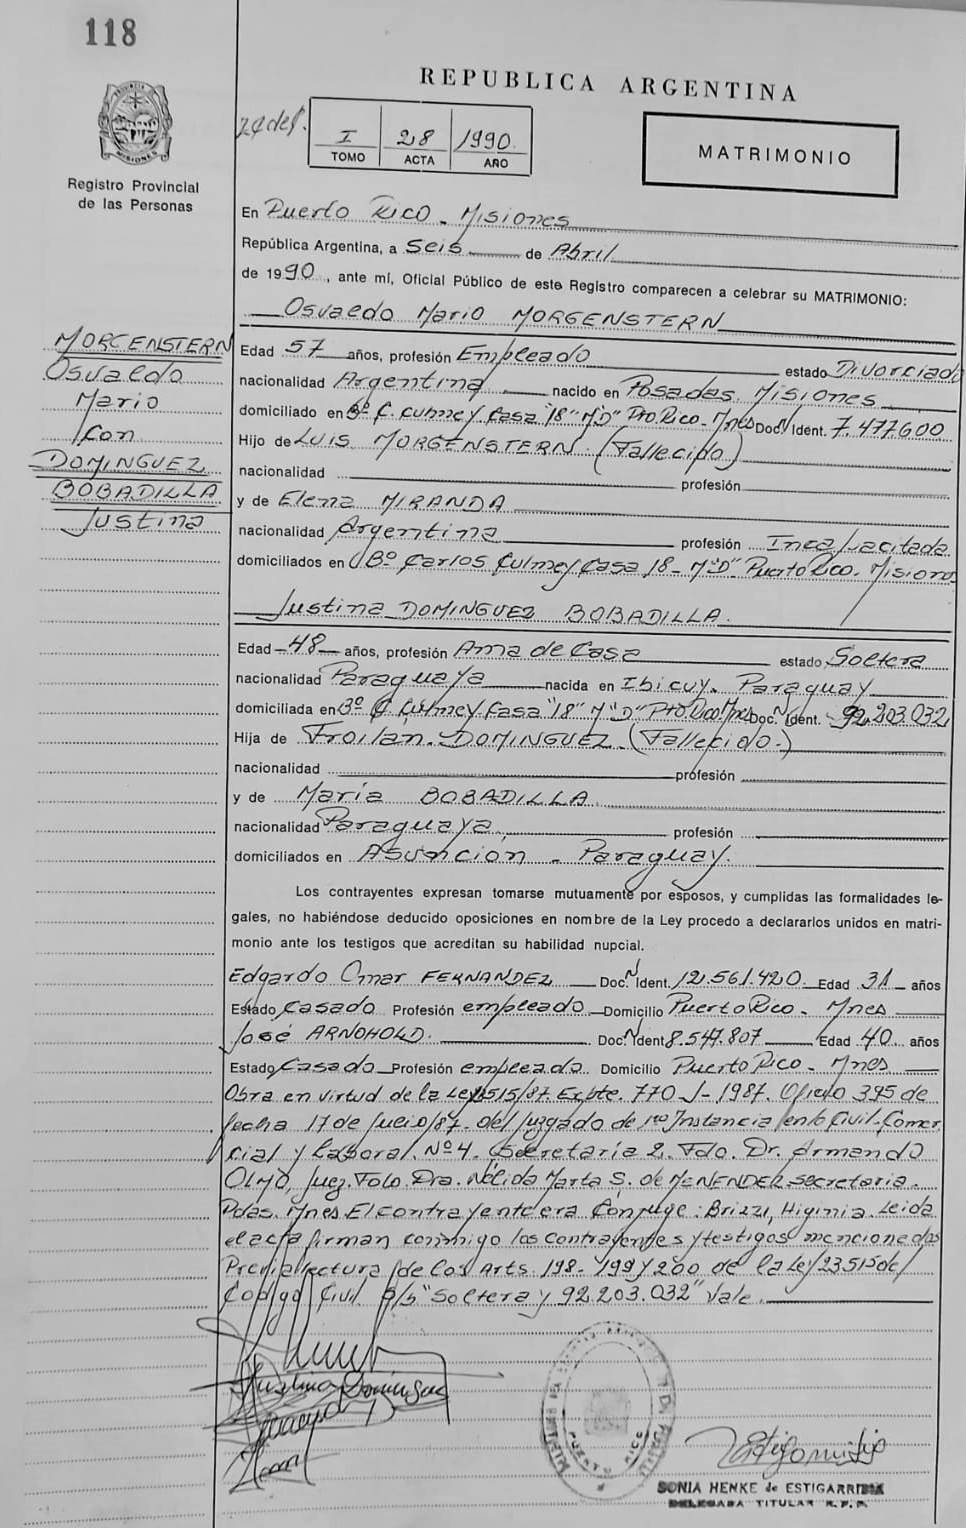 118
REPUBLICA ARGENTINA
I 28 1990
TOMO ACTA AÑO
MATRIMONIO
Registro Provincial
de las Personas
En Puerto Rico - Misiones
República Argentina, a Seis de Abril
de 1990, ante mí, Oficial Público de este Registro comparecen a celebrar su MATRIMONIO:
Osvaldo Mario MORGENSTERN
MORGENSTERN
Osvaldo
Mario
Con
DOMINGUEZ
BOBADILLA
Justina
Edad 57 años, profesión Empleado estado Divorciado
nacionalidad Argentina nacido en Posadas. Misiones
domiciliado en Bº C. Culmey Casa "18" M"D" Pto Rico - Mnes Doc. Ident. 7.477.600
Hijo de LUIS MORGENSTERN. (Fallecido)
nacionalidad profesión
y de Elena MIRANDA
nacionalidad Argentina profesión Incapacitada
domiciliados en Bº Carlos Culmey Casa 18 - M"D" Puerto Rico. Misiones
Justina DOMINGUEZ BOBADILLA.
Edad 48 años, profesión Ama de Casa estado Soltera
nacionalidad Paraguaya nacida en Ibicuy. Paraguay
domiciliada en Bº C. Culmey Casa "18" M"D" Pto Rico. Mnes Doc. Ident. 92.203.032
Hija de Froilan. DOMINGUEZ (Fallecido.)
nacionalidad profesión
y de María BOBADILLA.
nacionalidad Paraguaya. profesión
domiciliados en Asunción - Paraguay.
Los contrayentes expresan tomarse mutuamente por esposos, y cumplidas las formalidades le-
gales, no habiéndose deducido oposiciones en nombre de la Ley procedo a declararlos unidos en matri-
monio ante los testigos que acreditan su habilidad nupcial.
Edgardo Omar FERNANDEZ Doc. Ident. 12.561.420 Edad 31 años
Estado Casado Profesión empleado Domicilio Puerto Rico - Mnes
José ARNOHOLD. Doc. Ident 8.547.807 Edad 40 años
Estado Casado Profesión empleado Domicilio Puerto Rico - Mnes
Obra en virtud de la Ley 23515/87. Expte. 770-J-1987. Oficio 395 de
fecha 17 de Julio/87. del Juzgado de 1ra Instancia en lo Civil-Comer
cial y Laboral. Nº 4. Secretaría 2. Fdo. Dr. Armando
Olmo, Juez. Fdo. Dra. Nélida Marta S. de MENENDEZ secretaria.
Pdas. Mnes. El contrayente era Conyuge: Brizzi, Higinia. Leida
el acta firman conmigo los contrayentes y testigos mencionados
Previa lectura de los Arts. 198 - 199 y 200 de la Ley 23515 del
Código Civil. S/b "Soltera y 92.203.032" Vale.
PUERTO RICO
SONIA HENKE de ESTIGARRIBIA
DELEGADA TITULAR R.P.P.